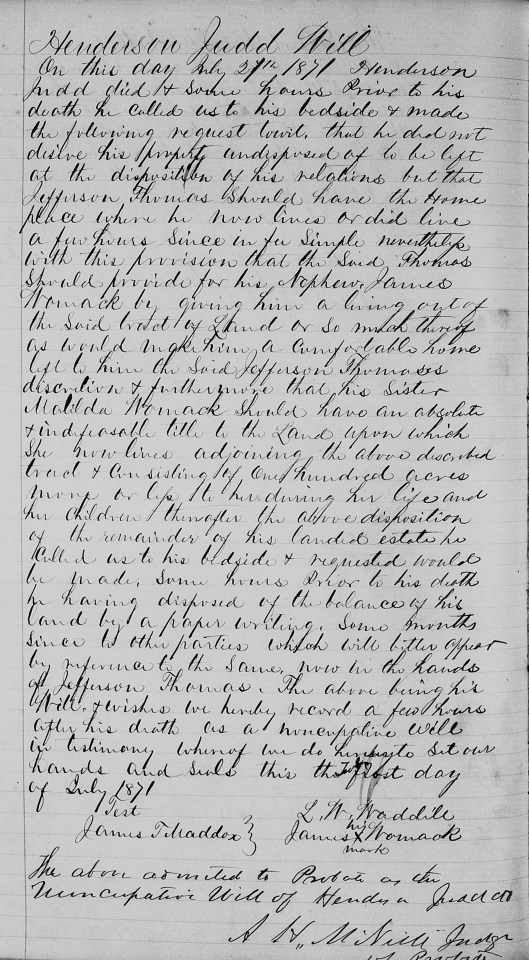 Henderson Judd Will
On this day July 27th 1871 Henderson
Judd died & some hours Prior to his
death he called us to his bedside & made
the following request towit, that he did not
desire his property undisposed of to be left
at the disposition of his relations but that
Jefferson Thomas Should have the Home
place where he now lives or did live
a few hours Since in fee Simple nevertheless
with this provision that the Said Thomas
Should provide for his Nephew James
Womack by giving him a living out of
the Said tract of Land or So much thereof
as would make him a Comfortable home
left to him the Said Jefferson Thomases
discretion & furthermore that his Sister
Matilda Womack Should have an absolute
& indefeasable title to the Land upon which
She now lives adjoining the above discribed
tract & Consisting of One hundred acres
more or less to her during her life and
her children thereafter the above disposition
of the remainder of his landed estate he
Called us to his bedside & requested would
be made, Some hours Prior to his death
he having disposed of the balance of his
land by a paper writing, Some months
Since to other parties which will better appear
by reference to the Same, now in the hands
of Jefferson Thomas. The above being his
Will & wishes we hereby record a few hours
after his death as a noncupative will
in testimony whereof we do hereunto Set our
hands and Seals this the first day
of July 1871
Test L. W. Waddile
James T Maddox } James his X mark Womack
The above admited to Probate as the
Nuncupative Will of Judd
A H, McNeill Judge
of Probate